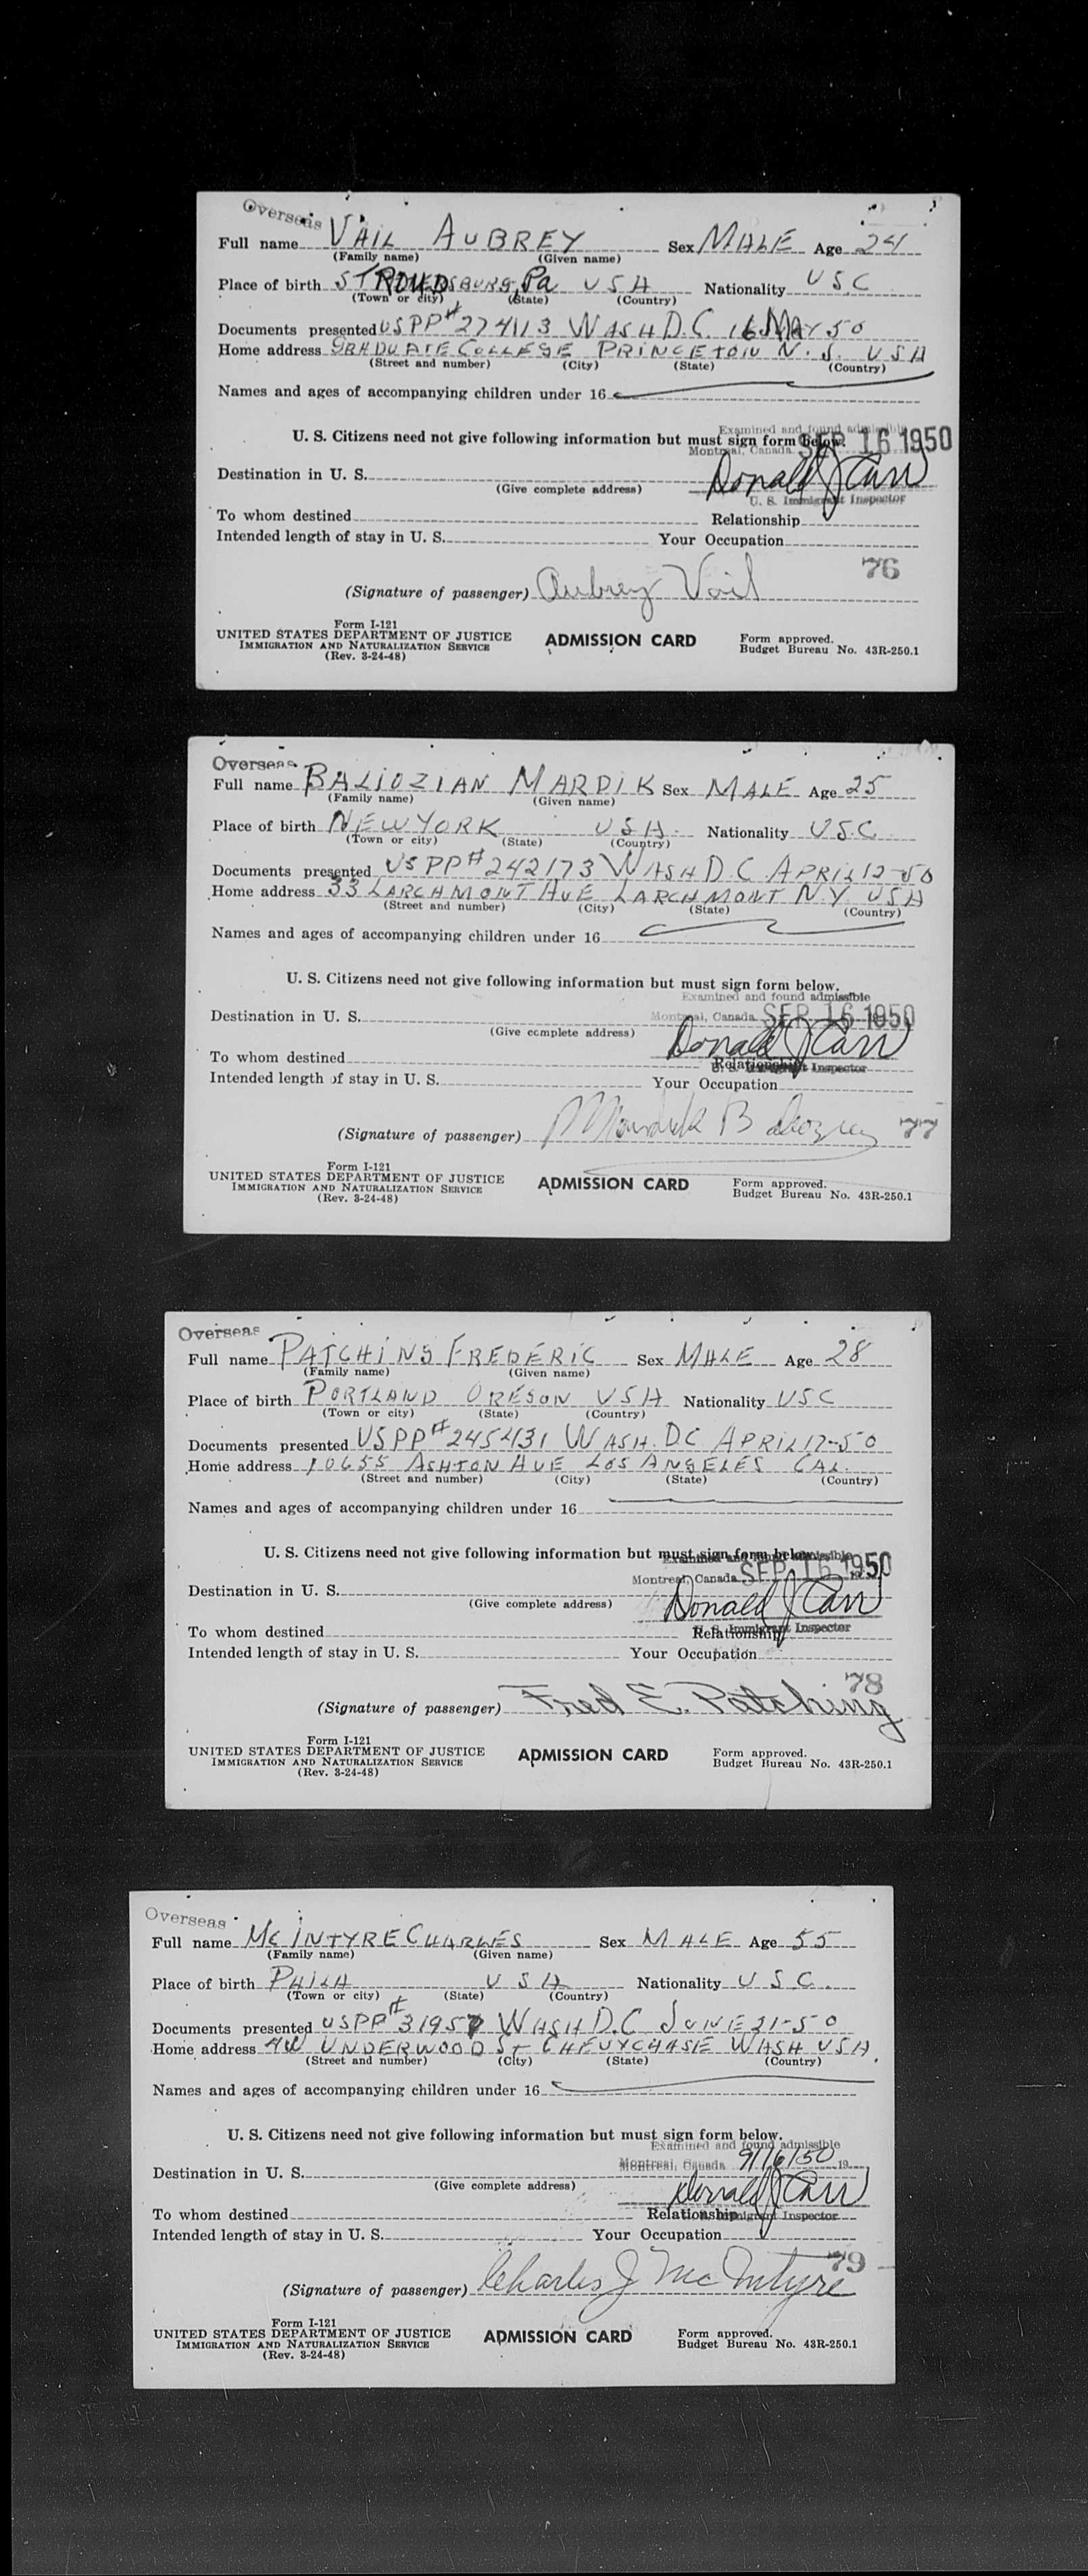 Overseas
Full name VAIL AUBREY Sex MALE Age 24
(Family name) (Given name)
Place of birth STROUDSBURG, Pa USA Nationality USC
(Town or city) (State) (Country)
Documents presented USPP# 274113 WASH D.C. 16 MAY 50
Home address GRADUATE COLLEGE PRINCETON N. J. USA
(Street and number) (City) (State) (Country)
Names and ages of accompanying children under 16
Examined and found admissible
U. S. Citizens need not give following information but must sign form below.
Montreal, Canada SEP 16 1950
Destination in U. S. Donald J Carr
(Give complete address)
U. S. Immigrant Inspector
To whom destined Relationship
Intended length of stay in U. S. Your Occupation
76
(Signature of passenger) Aubrey Vail
Form I-121
UNITED STATES DEPARTMENT OF JUSTICE ADMISSION CARD Form approved.
IMMIGRATION AND NATURALIZATION SERVICE Budget Bureau No. 43R-250.1
(Rev. 3-24-48)
Overseas
Full name BALIOZIAN MARDIK Sex MALE Age 25
(Family name) (Given name)
Place of birth NEW YORK USA. Nationality USC
(Town or city) (State) (Country)
Documents presented US PP# 242173 WASH D.C APRIL 12-50
Home address 33 LARCHMONT AVE LARCHMONT N.Y. USA
(Street and number) (City) (State) (Country)
Names and ages of accompanying children under 16
U. S. Citizens need not give following information but must sign form below.
Examined and found admissible
Destination in U. S. Montreal, Canada SEP 16 1950
(Give complete address) Donald J Carr
To whom destined Relationship
U. S. Immigrant Inspector
Intended length of stay in U. S. Your Occupation
(Signature of passenger) Mardik 77
Form I-121
UNITED STATES DEPARTMENT OF JUSTICE ADMISSION CARD Form approved.
IMMIGRATION AND NATURALIZATION SERVICE Budget Bureau No. 43R-250.1
(Rev. 3-24-48)
Overseas
Full name PATCHING FREDERIC Sex MALE Age 28
(Family name) (Given name)
Place of birth PORTLAND OREGON USA Nationality USC
(Town or city) (State) (Country)
Documents presented USPP# 245431 WASH. DC APRIL 17-50
Home address 10655 ASHTON AVE LOS ANGELES CAL.
(Street and number) (City) (State) (Country)
Names and ages of accompanying children under 16
U. S. Citizens need not give following information but must sign form below.
Examined and found admissible
Montreal, Canada SEP 16 1950
Destination in U. S.
(Give complete address) Donald J Carr
To whom destined Relationship
U. S. Immigrant Inspector
Intended length of stay in U. S. Your Occupation
78
(Signature of passenger) Fred E. Patching
Form I-121
UNITED STATES DEPARTMENT OF JUSTICE ADMISSION CARD Form approved.
IMMIGRATION AND NATURALIZATION SERVICE Budget Bureau No. 43R-250.1
(Rev. 3-24-48)
Overseas
Full name MCINTYRE CHARLES Sex MALE Age 55
(Family name) (Given name)
Place of birth PHILA USA Nationality USC.
(Town or city) (State) (Country)
Documents presented USPP# 31957 WASH D.C JUNE 21-50
Home address UNDERWOOD ST CHEVYCHASE WASH USA.
(Street and number) (City) (State) (Country)
Names and ages of accompanying children under 16
U. S. Citizens need not give following information but must sign form below.
Examined and found admissible
Montreal, Canada 9/16/50 19
Destination in U. S.
(Give complete address) Donald J Carr
To whom destined Relationship
U. S. Immigrant Inspector
Intended length of stay in U. S. Your Occupation
79
(Signature of passenger) Charles J McIntyre
Form I-121
UNITED STATES DEPARTMENT OF JUSTICE ADMISSION CARD Form approved.
IMMIGRATION AND NATURALIZATION SERVICE Budget Bureau No. 43R-250.1
(Rev. 3-24-48)